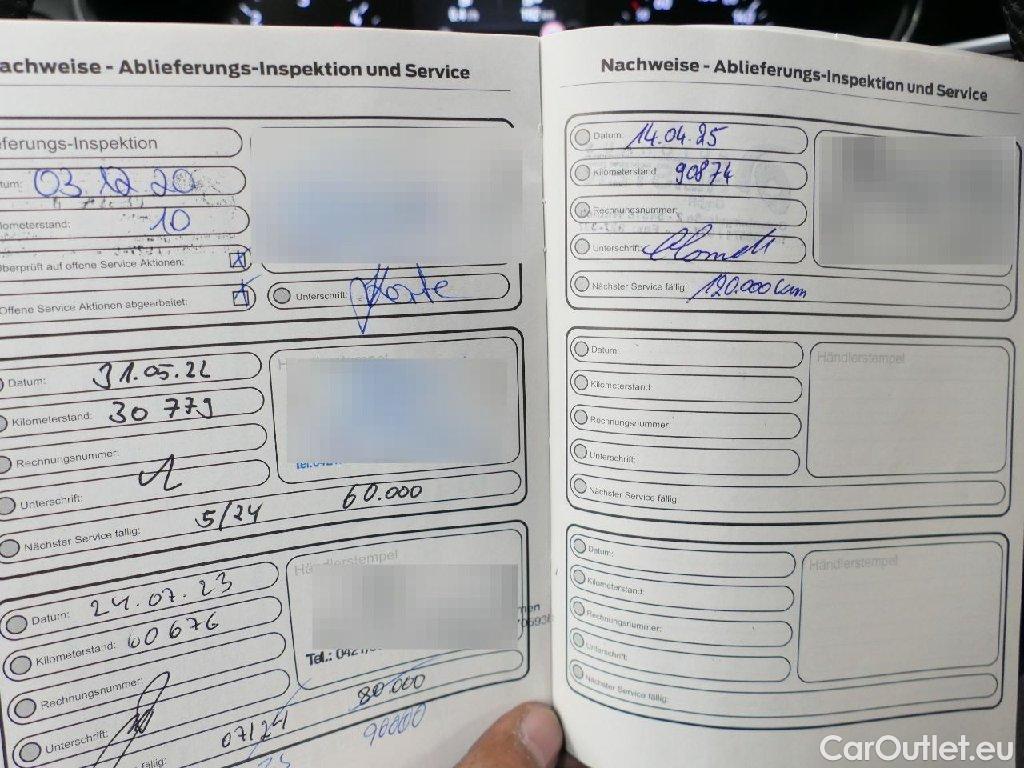 achweise - Ablieferungs-Inspektion und Service
eferungs-Inspektion
tum: 03.12.20
lometerstand: 10
Überprüft auf offene Service Aktionen:
Offene Service Aktionen abgearbeitet:
Unterschrift:
Datum: 31.05.22
Kilometerstand: 30 779
Rechnungsnummer:
Unterschrift:
Nächster Service fällig: 5/24 60.000
Datum: 24.07.23
Kilometerstand: 60 676
Rechnungsnummer:
Unterschrift:
Händlerstempel
men
Tel.: 0421/
fällig: 07/24 80.000
90000
Nachweise - Ablieferungs-Inspektion und Service
Datum: 14.04.25
Kilometerstand: 90874
Rechnungsnummer:
Unterschrift:
Nächster Service fällig: 120.000 km
Datum:
Kilometerstand:
Rechnungsnummer:
Unterschrift:
Nächster Service fällig:
Händlerstempel
Datum:
Kilometerstand:
Rechnungsnummer:
Unterschrift:
Nächster Service fällig:
Händlerstempel
CarOutlet.eu